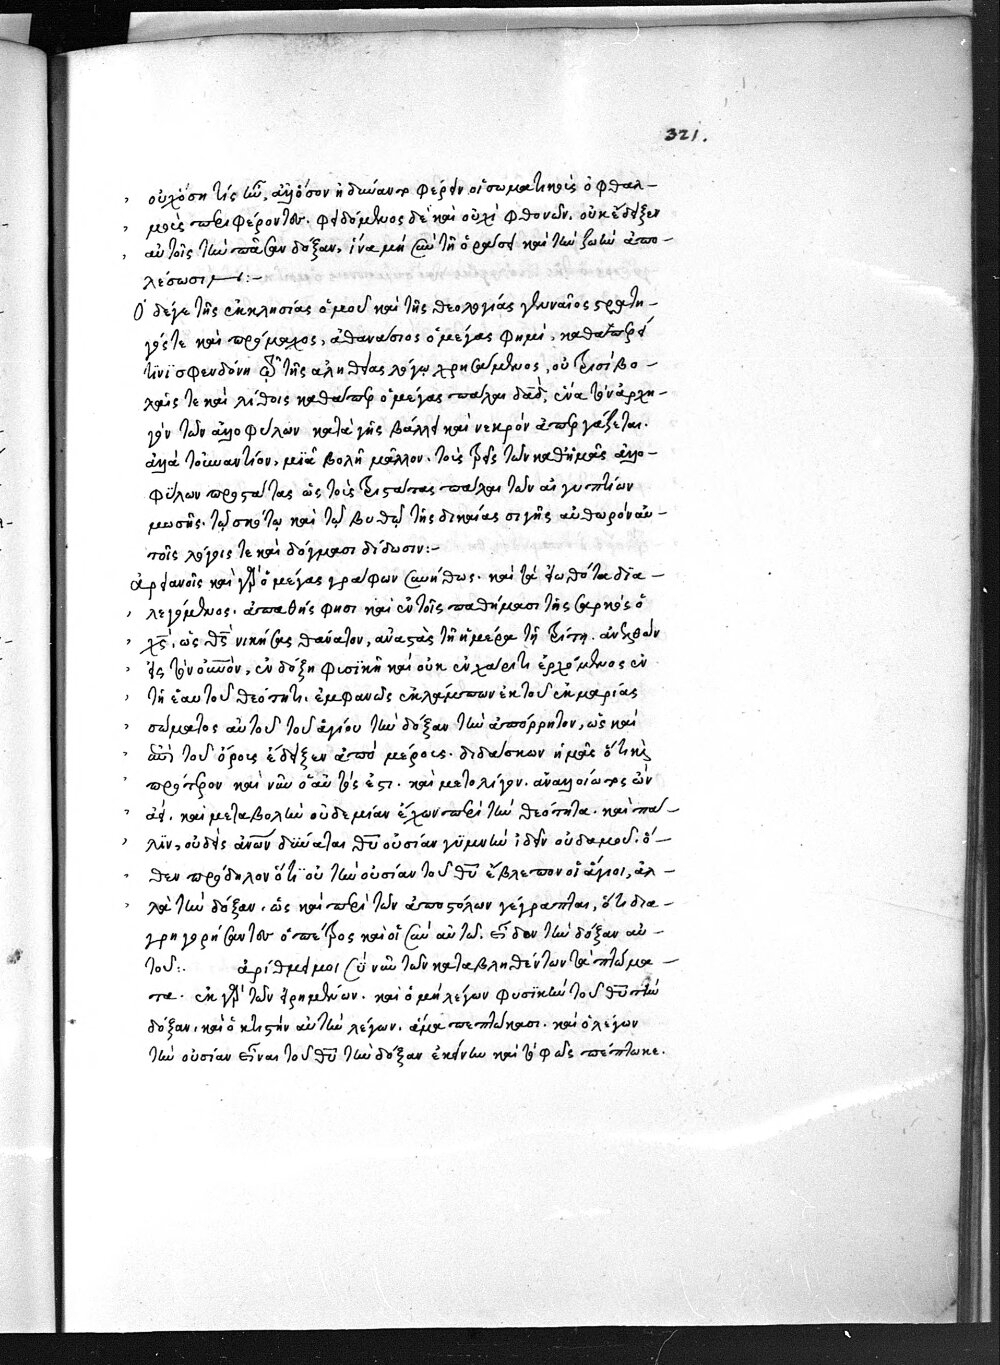 321.
οὐχ ὅση τίς ἦν, ἀλλ' ὅσον ἠδύναντο φέρειν οἱ σωματικοῖς ὀφθαλ-
μοῖς περιφέροντες. φειδόμενος δὲ καὶ οὐχὶ φθονῶν, οὐκ ἔδειξεν
αὐτοῖς τὴν πᾶσαν δόξαν, ἵνα μὴ σὺν τῇ ὁράσει καὶ τὴν ζωὴν ἀπο-
λέσωσιν:-
Ὁ δέ γε τῆς ἐκκλησίας ὁμοῦ καὶ τῆς θεολογίας γενναῖος στρατη-
γός τε καὶ πρόμαχος, ἀθανάσιος ὁ μέγας φημὶ, καθαπερεί
τινι σφενδόνῃ τῷ τῆς ἀληθείας λόγῳ χρησάμενος, οὐ τρισὶ βο-
λαῖς τε καὶ λίθοις καθάπερ ὁ μέγας πάλαι δαδ, ἕνα τὸν ἀρχη-
γὸν τῶν ἀλλοφύλων κατὰ γῆς βάλλει καὶ νεκρὸν ἀπεργάζεται.
ἀλλὰ τοὐναντίον, μιᾷ βολῇ μᾶλλον. τοὺς τρεῖς τῶν καθ' ἡμᾶς ἀλλο-
φύλων προστάτας ὡς τοὺς τριστάτας πάλαι τῶν αἰγυπτίων
μωσῆς. τῷ σκότῳ καὶ τῷ βυθῷ τῆς δικαίας σιγῆς αὐθωρὸν αὐ-
τοῖς λόγοις τε καὶ δόγμασι δίδωσιν:-
ἀρειανοῖς καὶ γὰρ ὁ μέγας γράφων συνήθως. καὶ τὰ εἰωθότα δια-
λεγόμενος. ἀπαθής φησι καὶ ἐν τοῖς παθήμασι τῆς σαρκὸς ὁ
χς, ὡς θς νικήσας θάνατον, ἀναστὰς τῇ ἡμέρᾳ τῇ τρίτῃ. ἀνελθὼν
εἰς τὸν οὐνὸν, ἐν δόξῃ φυσικῇ καὶ οὐκ ἐν χάριτι ἐρχόμενος ἐν
τῇ ἑαυτοῦ θεότητι. ἐμφανῶς ἐκλάμπων ἐκ τοῦ ἐκ μαρίας
σώματος αὐτοῦ τοῦ ἁγίου τὴν δόξαν τὴν ἀπόρρητον, ὡς καὶ
ἐπὶ τοῦ ὄρους ἔδειξεν ἀπὸ μέρους. διδάσκων ἡμᾶς ὅτι καὶ
πρότερον καὶ νῦν ὁ αὐτός ἐστι. καὶ μετ' ὀλίγον. ἀναλλοίωτος ὢν
ἀεί. καὶ μεταβολὴν οὐδεμίαν ἔχων περὶ τὴν θεότητα. καὶ πά-
λιν, οὐδεὶς ἀνων δύναται θυ οὐσίαν γυμνὴν ἰδεῖν οὐδαμοῦ. ὅ-
θεν πρόδηλον ὅτι οὐ τὴν οὐσίαν τοῦ θυ ἔβλεπον οἱ ἅγιοι, ἀλ-
λὰ τὴν δόξαν. ὡς καὶ περὶ τῶν ἀποστόλων γέγραπται, ὅτι δια-
γρηγορήσαντες ὁ πέτρος καὶ οἱ σὺν αὐτῷ. εἶδον τὴν δόξαν αὐ-
τοῦ:. ἀρίθμει μοι σὺ νῦν τῶν καταβληθέντων τὰ πτώμα-
τα. ἐκ γὰρ τῶν εἰρημένων. καὶ ὁ μὴ λέγων φυσικὴν τοῦ θυ τὴν
δόξαν. καὶ ὁ κτιστὴν αὐτὴν λέγων. ἅμα πεπτώκασι. καὶ ὁ λέγων
τὴν οὐσίαν εἶναι τοῦ θυ τὴν δόξαν ἐκείνην καὶ τὸ φῶς πέπτωκε.